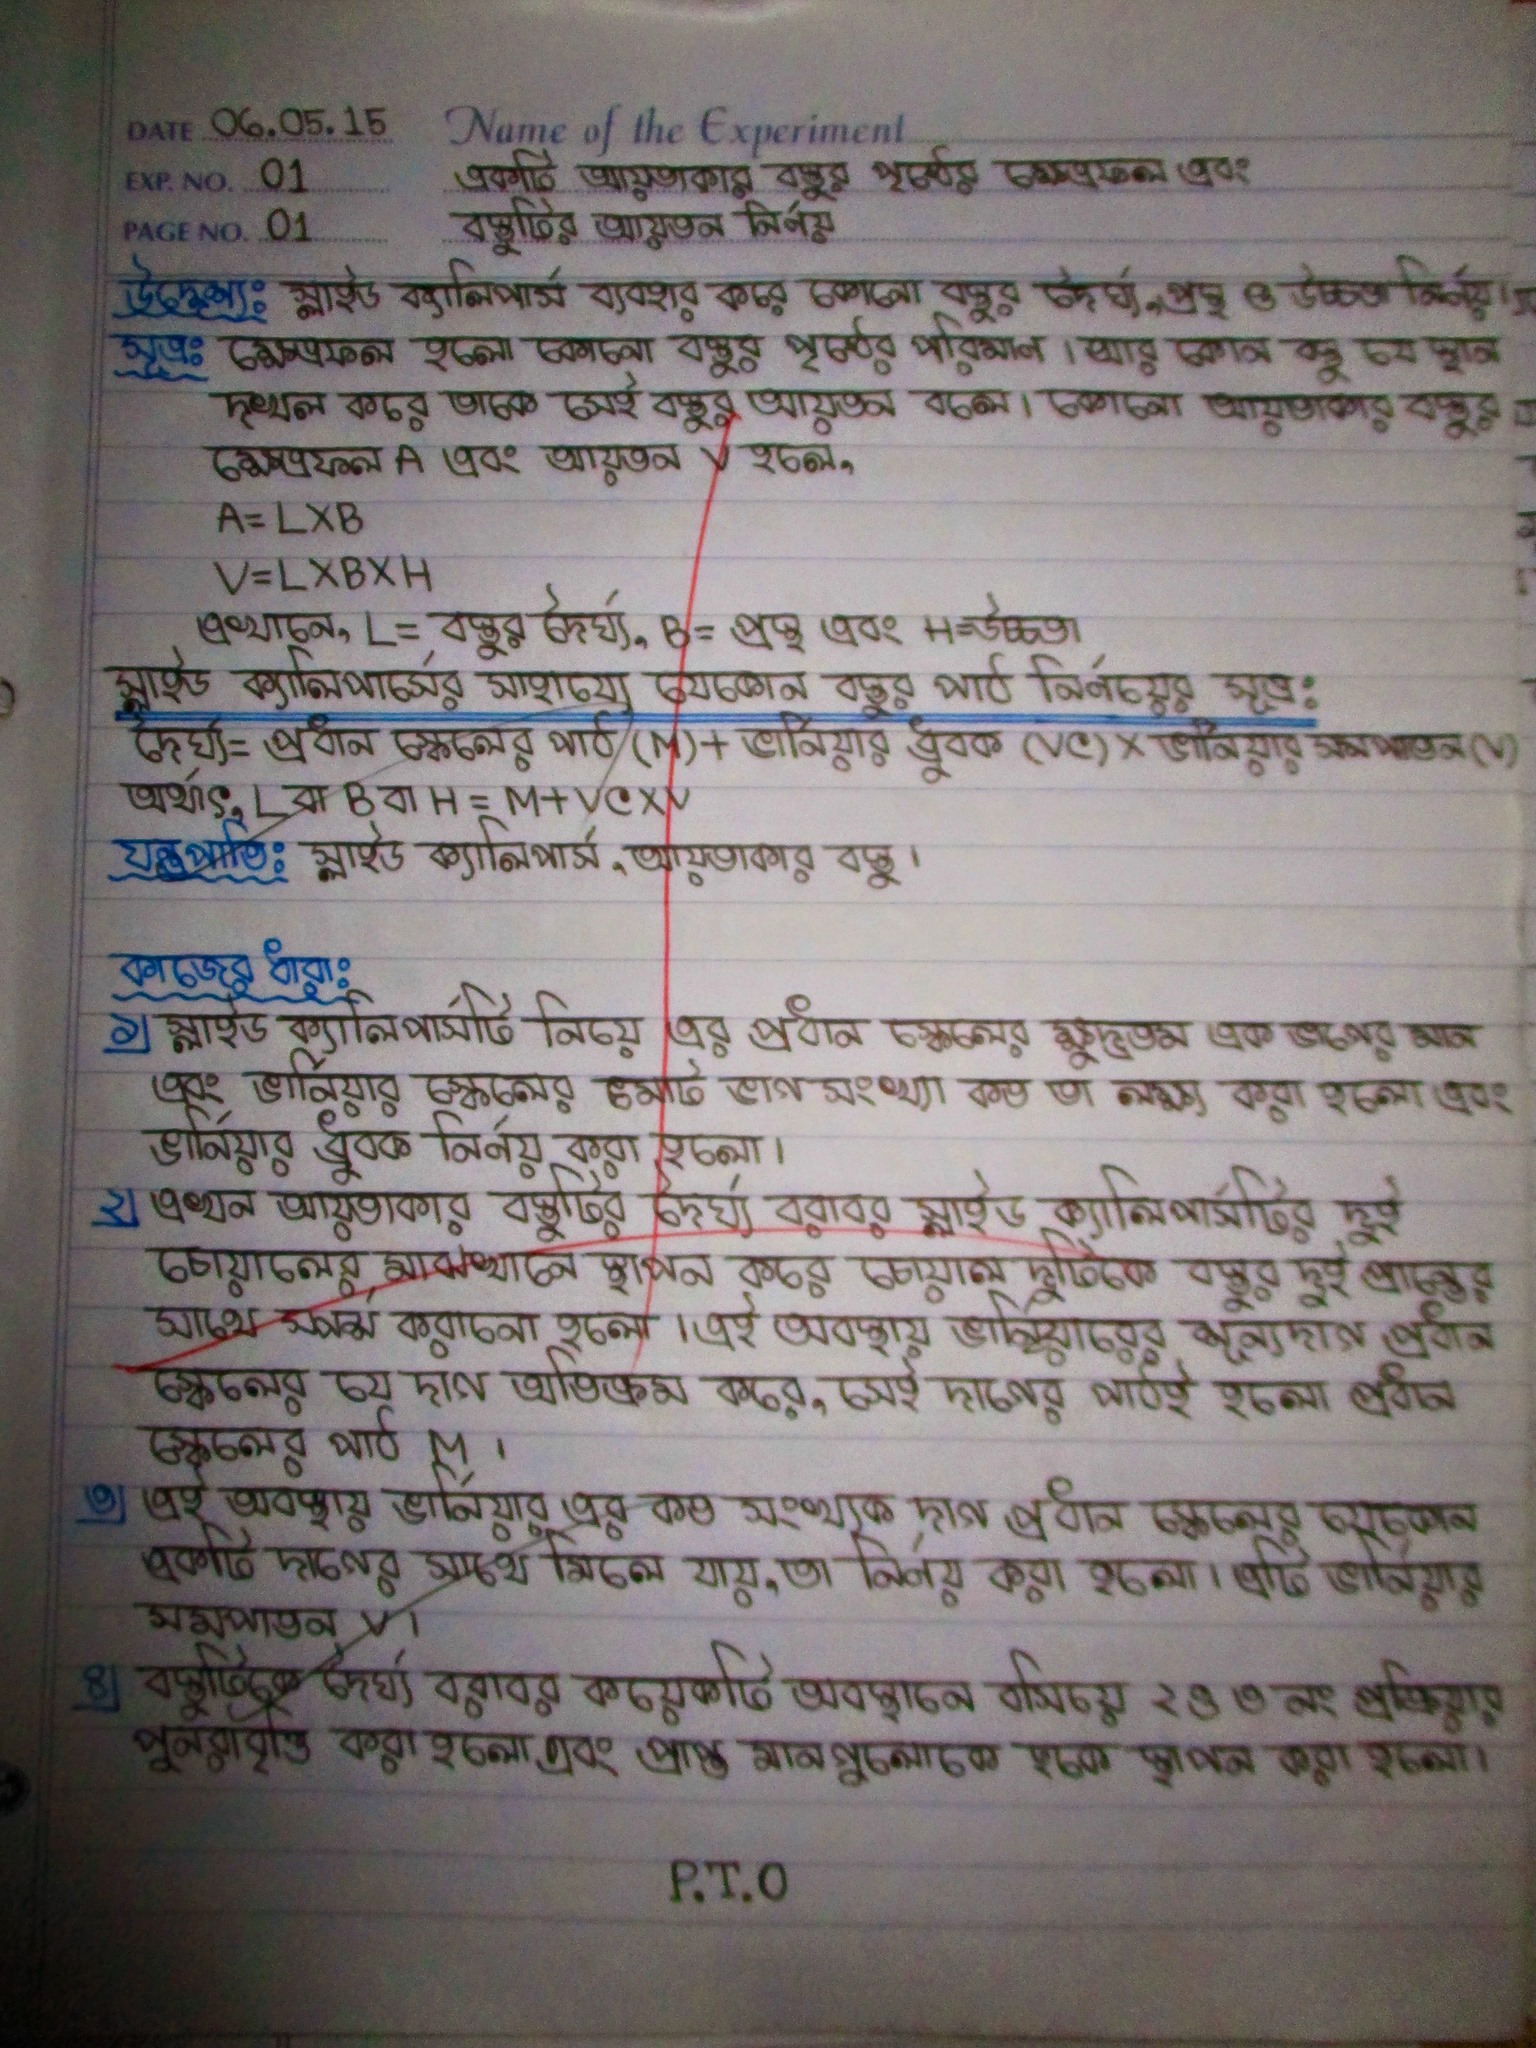 DATE 06.05.15 Name of the Experiment
EXP. NO. 01 একটি আয়তাকার বস্তুর পৃষ্ঠের ক্ষেত্রফল এবং
PAGE NO. 01 বস্তুটির আয়তন নির্ণয়
উদ্দেশ্য: স্লাইড ক্যালিপার্স ব্যবহার করে কোনো বস্তুর দৈর্ঘ্য, প্রস্থ ও উচ্চতা নির্ণয়।
সূত্র: ক্ষেত্রফল হলো কোনো বস্তুর পৃষ্ঠের পরিমান। আর কোন বস্তু যে স্থান
দখল করে তাকে সেই বস্তুর আয়তন বলে। কোনো আয়তাকার বস্তুর
ক্ষেত্রফল A এবং আয়তন V হলে,
A=LXB
V=LXBXH
এখানে, L= বস্তুর দৈর্ঘ্য, B= প্রস্থ এবং H=উচ্চতা
স্লাইড ক্যালিপার্সের সাহায্যে যেকোন বস্তুর পাঠ নির্ণয়ের সূত্র:
দৈর্ঘ্য= প্রধান স্কেলের পাঠ (M)+ ভার্নিয়ার ধ্রুবক (VC)× ভার্নিয়ার সমপাতন(V)
অর্থাৎ, L বা B বা H = M+VCXV
যন্ত্রপাতি: স্লাইড ক্যালিপার্স, আয়তাকার বস্তু।
কাজের ধারা:
১) স্লাইড ক্যালিপার্সটি নিয়ে এর প্রধান স্কেলের ক্ষুদ্রতম এক ভাগের মান
এবং ভার্নিয়ার স্কেলের মোট ভাগ সংখ্যা কত তা লক্ষ্য করা হলো এবং
ভার্নিয়ার ধ্রুবক নির্ণয় করা হলো।
২) এখন আয়তাকার বস্তুটির দৈর্ঘ্য বরাবর স্লাইড ক্যালিপার্সটির দুই
চোয়ালের মাঝখানে স্থাপন করে চোয়াল দুটিকে বস্তুর দুই প্রান্তের
সাথে স্পর্শ করানো হলো। এই অবস্থায় ভার্নিয়ারের শূন্যদাগ প্রধান
স্কেলের যে দাগ অতিক্রম করে, সেই দাগের পাঠই হলো প্রধান
স্কেলের পাঠ M।
৩) এই অবস্থায় ভার্নিয়ার এর কত সংখ্যক দাগ প্রধান স্কেলের যেকোন
একটি দাগের সাথে মিলে যায়, তা নির্ণয় করা হলো। এটি ভার্নিয়ার
সমপাতন V।
৪) বস্তুটিকে দৈর্ঘ্য বরাবর কয়েকটি অবস্থানে বসিয়ে ২ ও ৩ নং প্রক্রিয়ার
পুনরাবৃত্তি করা হলো এবং প্রাপ্ত মানগুলোকে ছকে স্থাপন করা হলো।
P.T.O